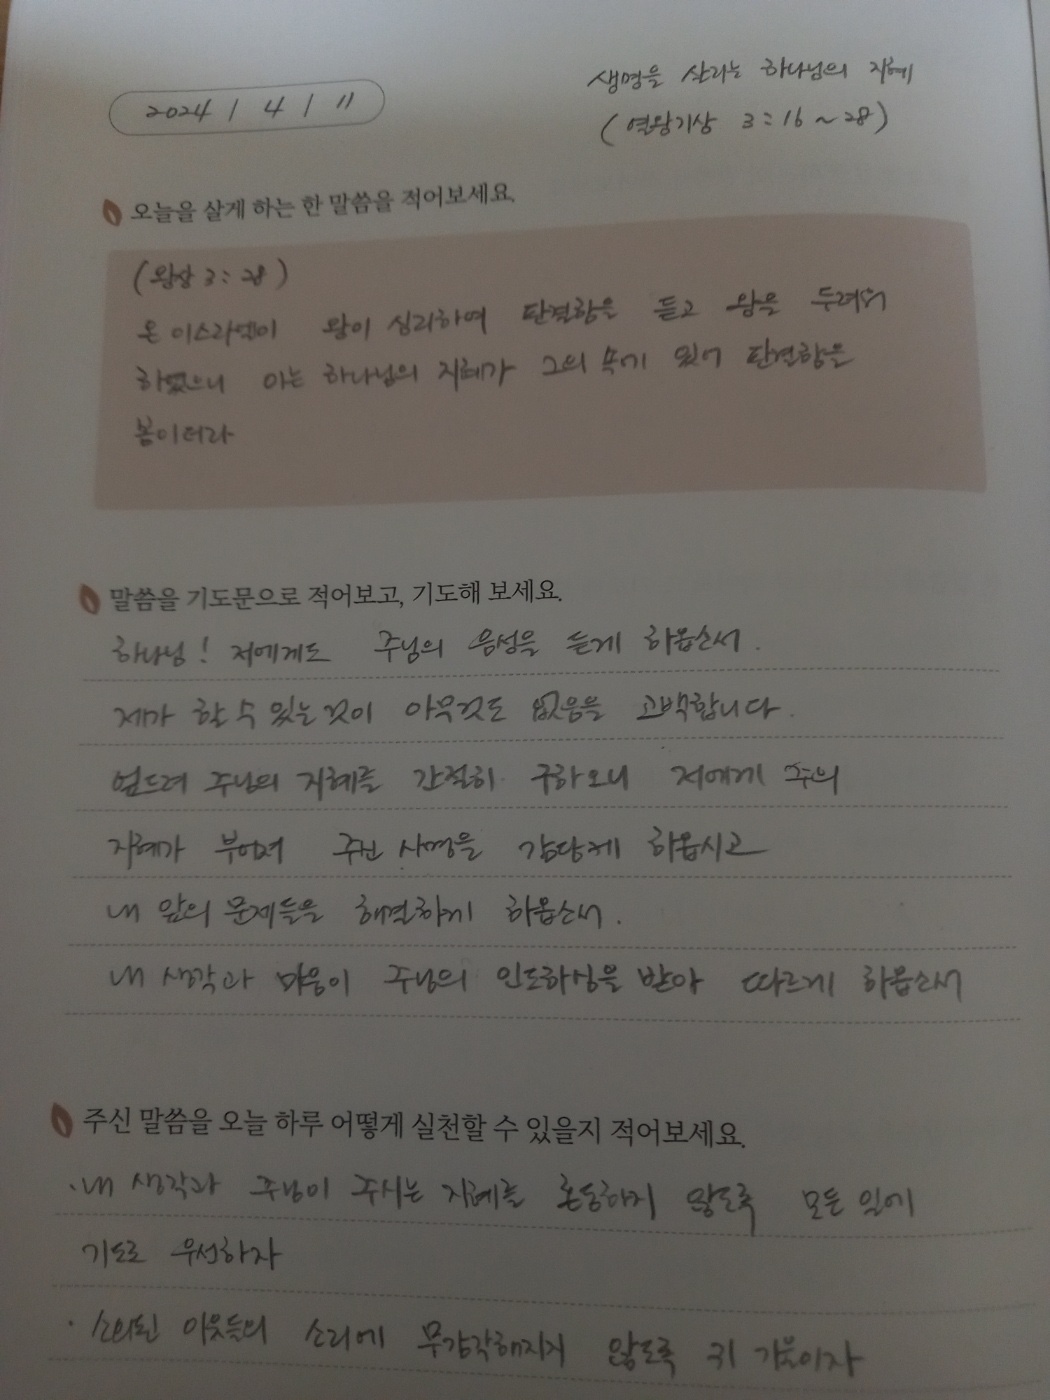 2024 / 4 / 11
생명을 살리는 하나님의 지혜
(열왕기상 3:16~28)
오늘을 살게 하는 한 말씀을 적어보세요.
(왕상 3:28)
온 이스라엘이 왕이 심리하여 판결함을 듣고 왕을 두려워
하였으니 이는 하나님의 지혜가 그의 속에 있어 판결함을
봄이더라
말씀을 기도문으로 적어보고, 기도해 보세요.
하나님! 저에게도 주님의 음성을 듣게 하옵소서.
제가 할 수 있는 것이 아무것도 없음을 고백합니다.
엎드려 주님의 지혜를 간절히 구하오니 저에게 주의
지혜가 부어져 주신 사명을 감당케 하옵시고
내 앞의 문제들을 해결하게 하옵소서.
내 생각과 마음이 주님의 인도하심을 받아 따르게 하옵소서
주신 말씀을 오늘 하루 어떻게 실천할 수 있을지 적어보세요.
· 내 생각과 주님이 주시는 지혜를 혼동하지 않도록 모든 일에
기도로 우선하자
· 소외된 이웃들의 소리에 무감각해지지 않도록 귀 기울이자